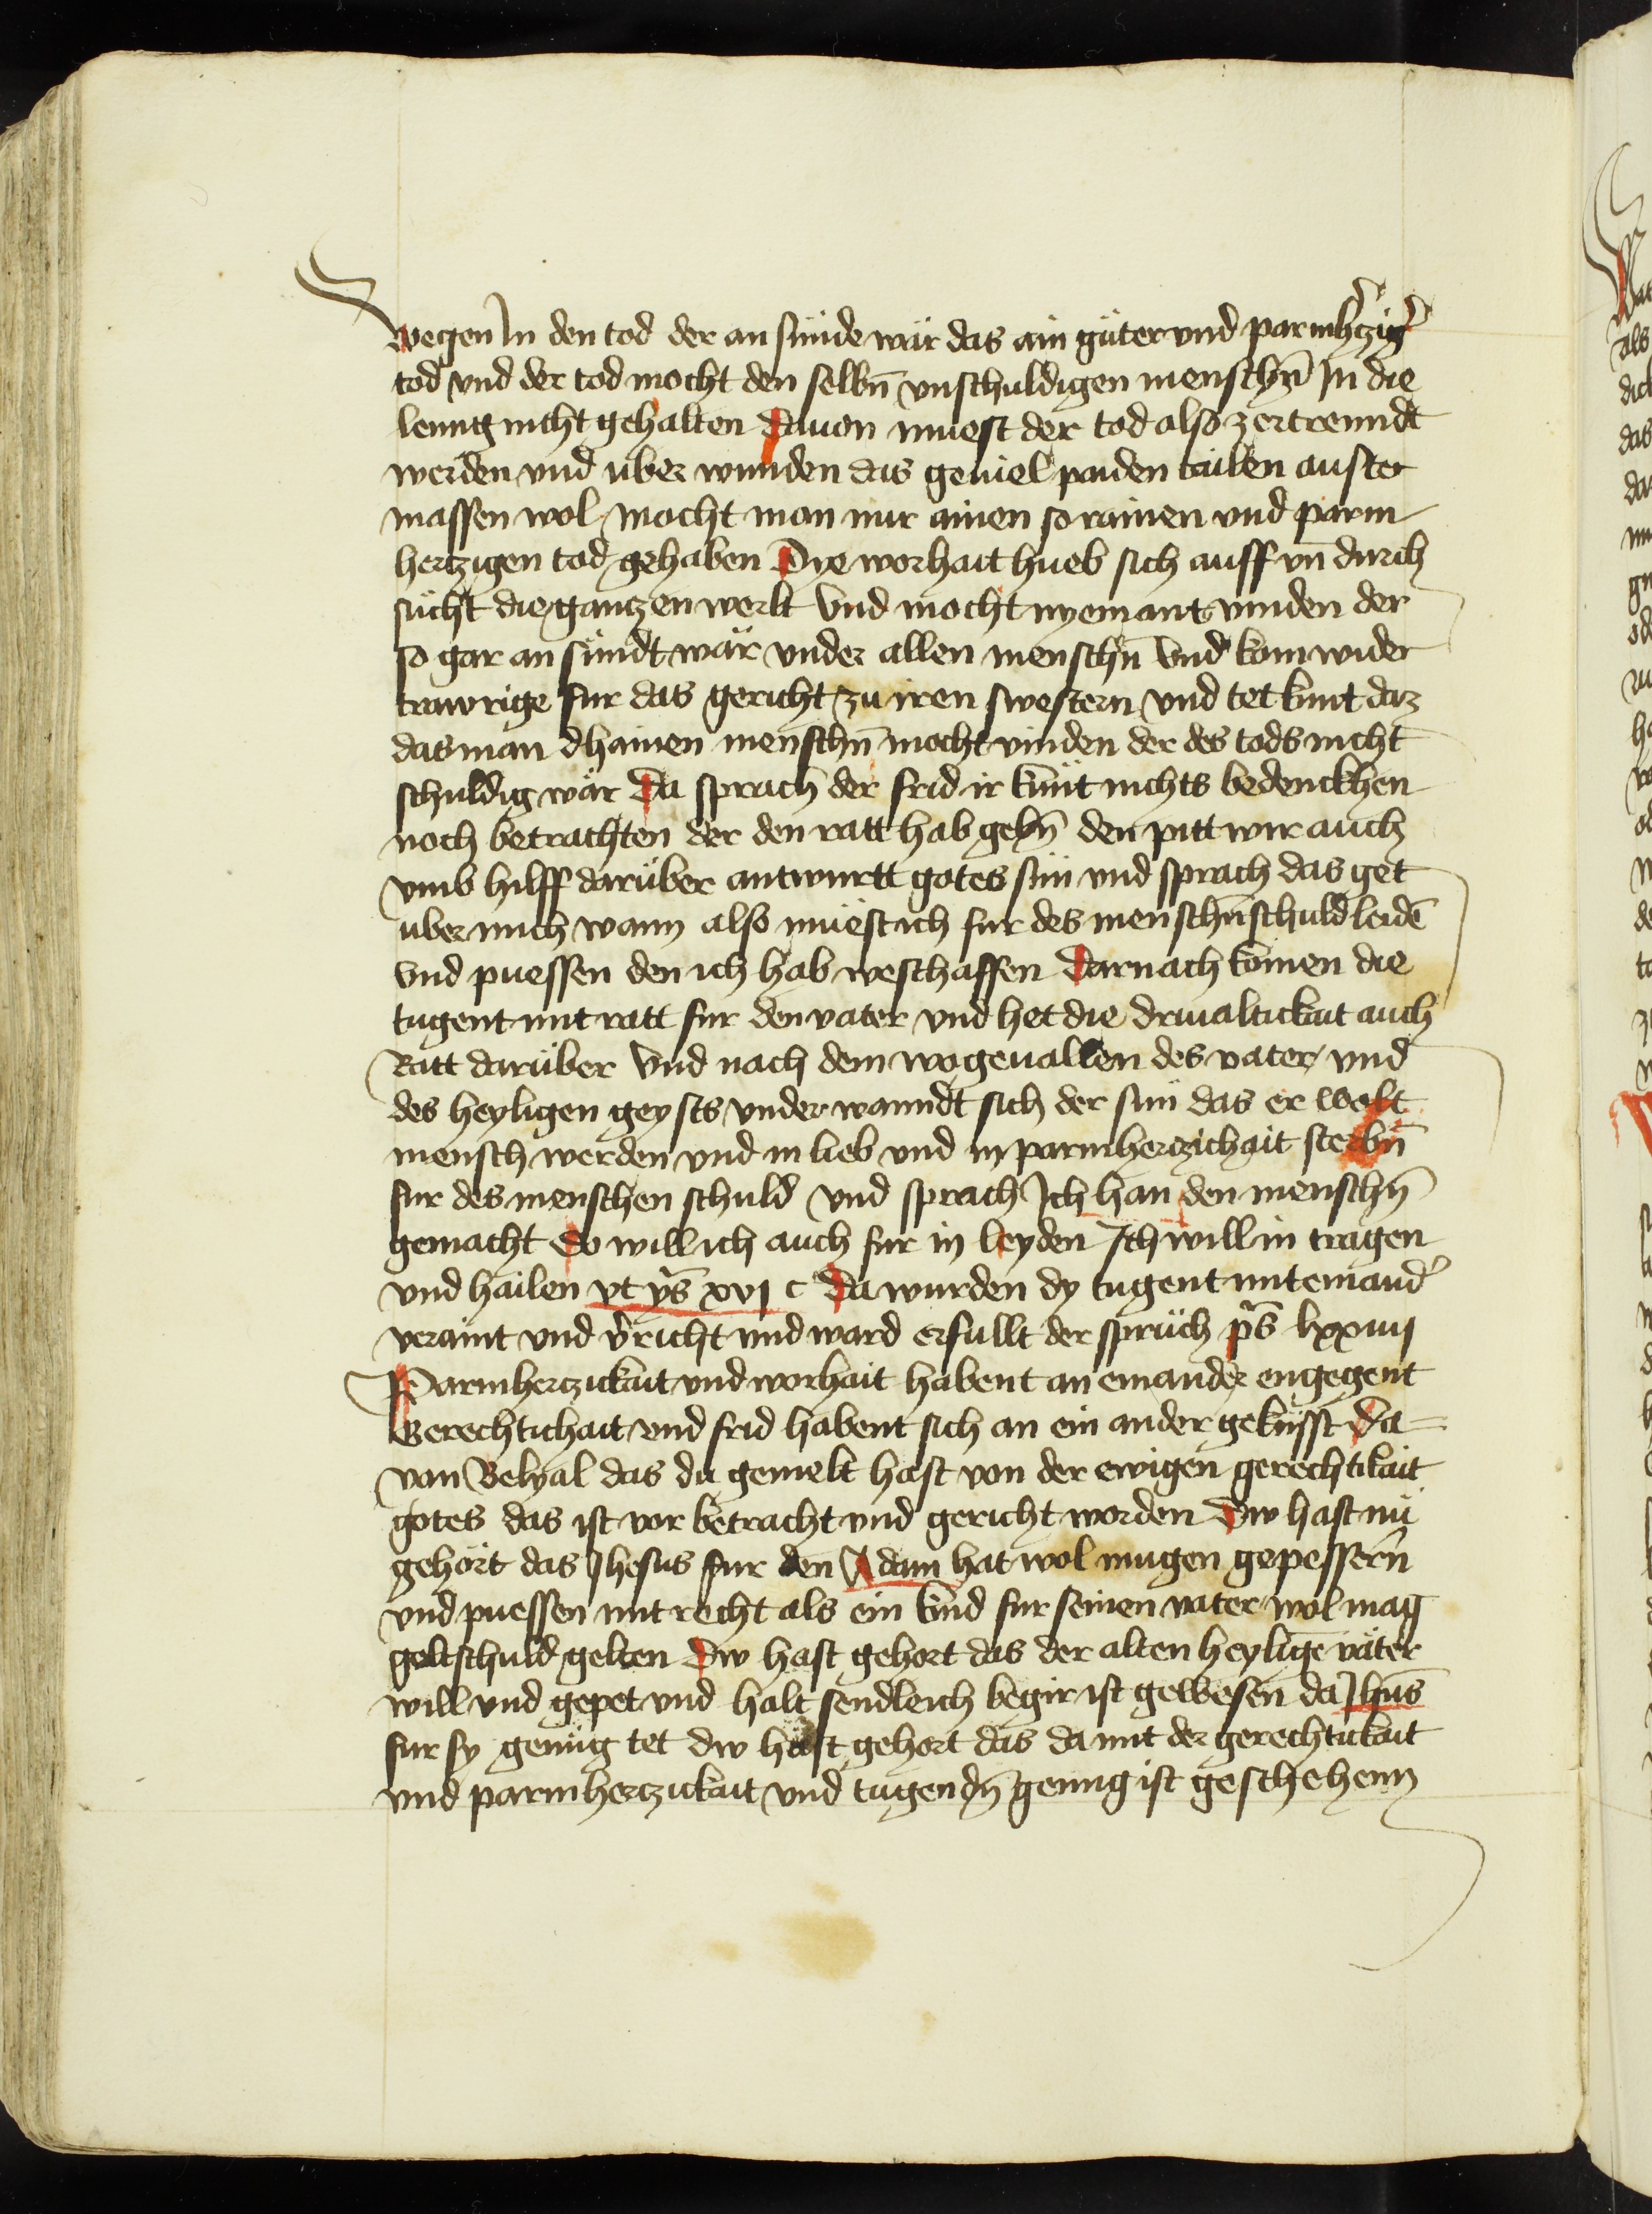 wegen In den tod der an sünde wär das ain güter vnd parmhꝛ̃czigꝰ
tod vnd der tod mocht den selbñ vnschuldigen menschñ In die
leng nicht gehalten Dauon muest der tod also zertrenndt
werden vnd vber wunden das geuiel paiden tailen auster
massen wol mocht man nur ainen so rainen vnd parm
hertzigen tod gehaben Dye worhait hueb sich auff vñ durich
sücht die gantzen werlt Vnd mocht nyemant vinden der
so gar an sündt wär vnder allen menschñ Vnd kom wider
trawrige fur das gericht zu iren swestern vnd tet kunt daz
das man dhainen menschñ mocht vinden der des tods nicht
schuldig wär Da sprach der frid ir künt nichts bedenckhen
noch betrachten der den ratt hab gebñ den pitt wir auch
vmb hilff darüber antwurtt gotes sün vnd sprach das get
vber mich wann also müest ich fur des menschñ schuld leidē
Vnd puessen den ich hab weschaffen Darnach komen die
tugent mit ratt fur den vater vnd het die driualtickait auch
Ratt darüber Vnd nach dem wogeuallen des vater vnd
des heyligen geysts vnder wanndt sich der sün das er wolt
mensch werden vnd in lieb vnd in parmhertzichait sterbñ
fur des menschen schuld vnd sprach Ich han den menschñ
gemacht Do will ich auch fur in leyden Ich will in tragen
vnd hailen vt ys̄ xvj c Da wurden dy tugent mit einandꝰ
veraint vnd v̄richt vnd ward erfullt der sprüch ps̄ lxxiiij
Parmhertzickait vnd worhait habent an einander engegent
Gerechtichait vnd frid habent sich an ein ander geküsst Da=
von Belyal das du gemelt hast von der ewigen gerechtikait
gotes das ist vor betracht vnd gericht worden Dw hast nü
gehört das Jhesus fur den Adam hat wol mugen gepessern̄
vnd puessen mit recht als ein kind fur seinen vater wol mag
geltschuld gelten Dw hast gehort das der alten heyligē väter
will vnd gepet vnd halt sendleich begir ist gewesen da Jhūs
fur sy genüg tet dw hast gehort das da mit der gerechtickait
vnd parmhertzickait vnd tugendñ genug ist geschehenn